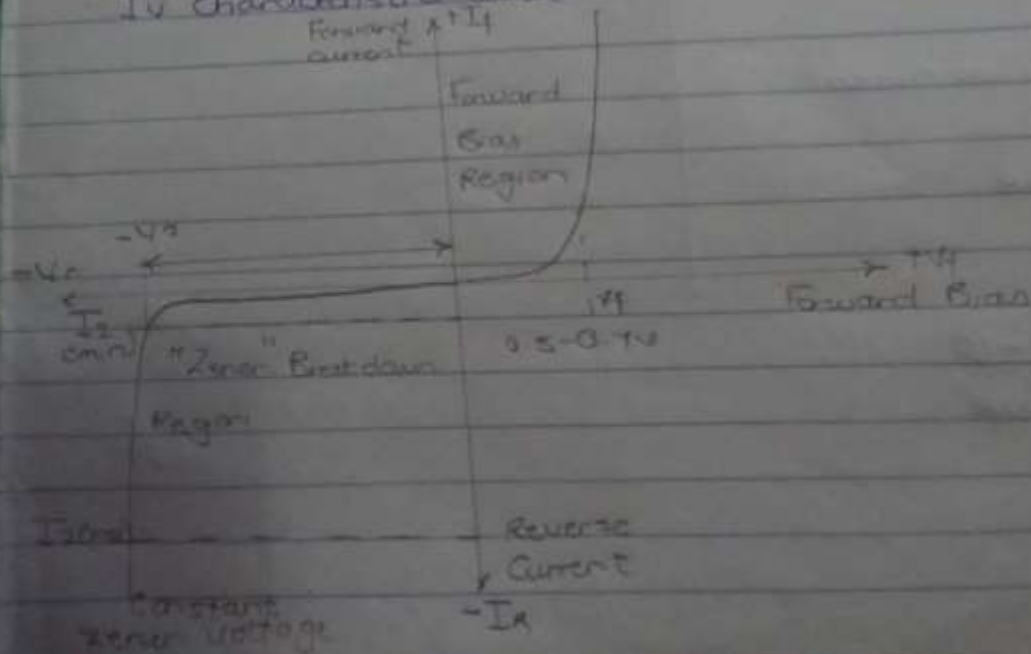 IV Characteristics
Forward +If
current
Forward
Bias
Region
+Vf
Vf
Forward Bias
Iz
(min)
"Zener" Breakdown
Region
Reverse
Current
-IR
Constant
zener voltage